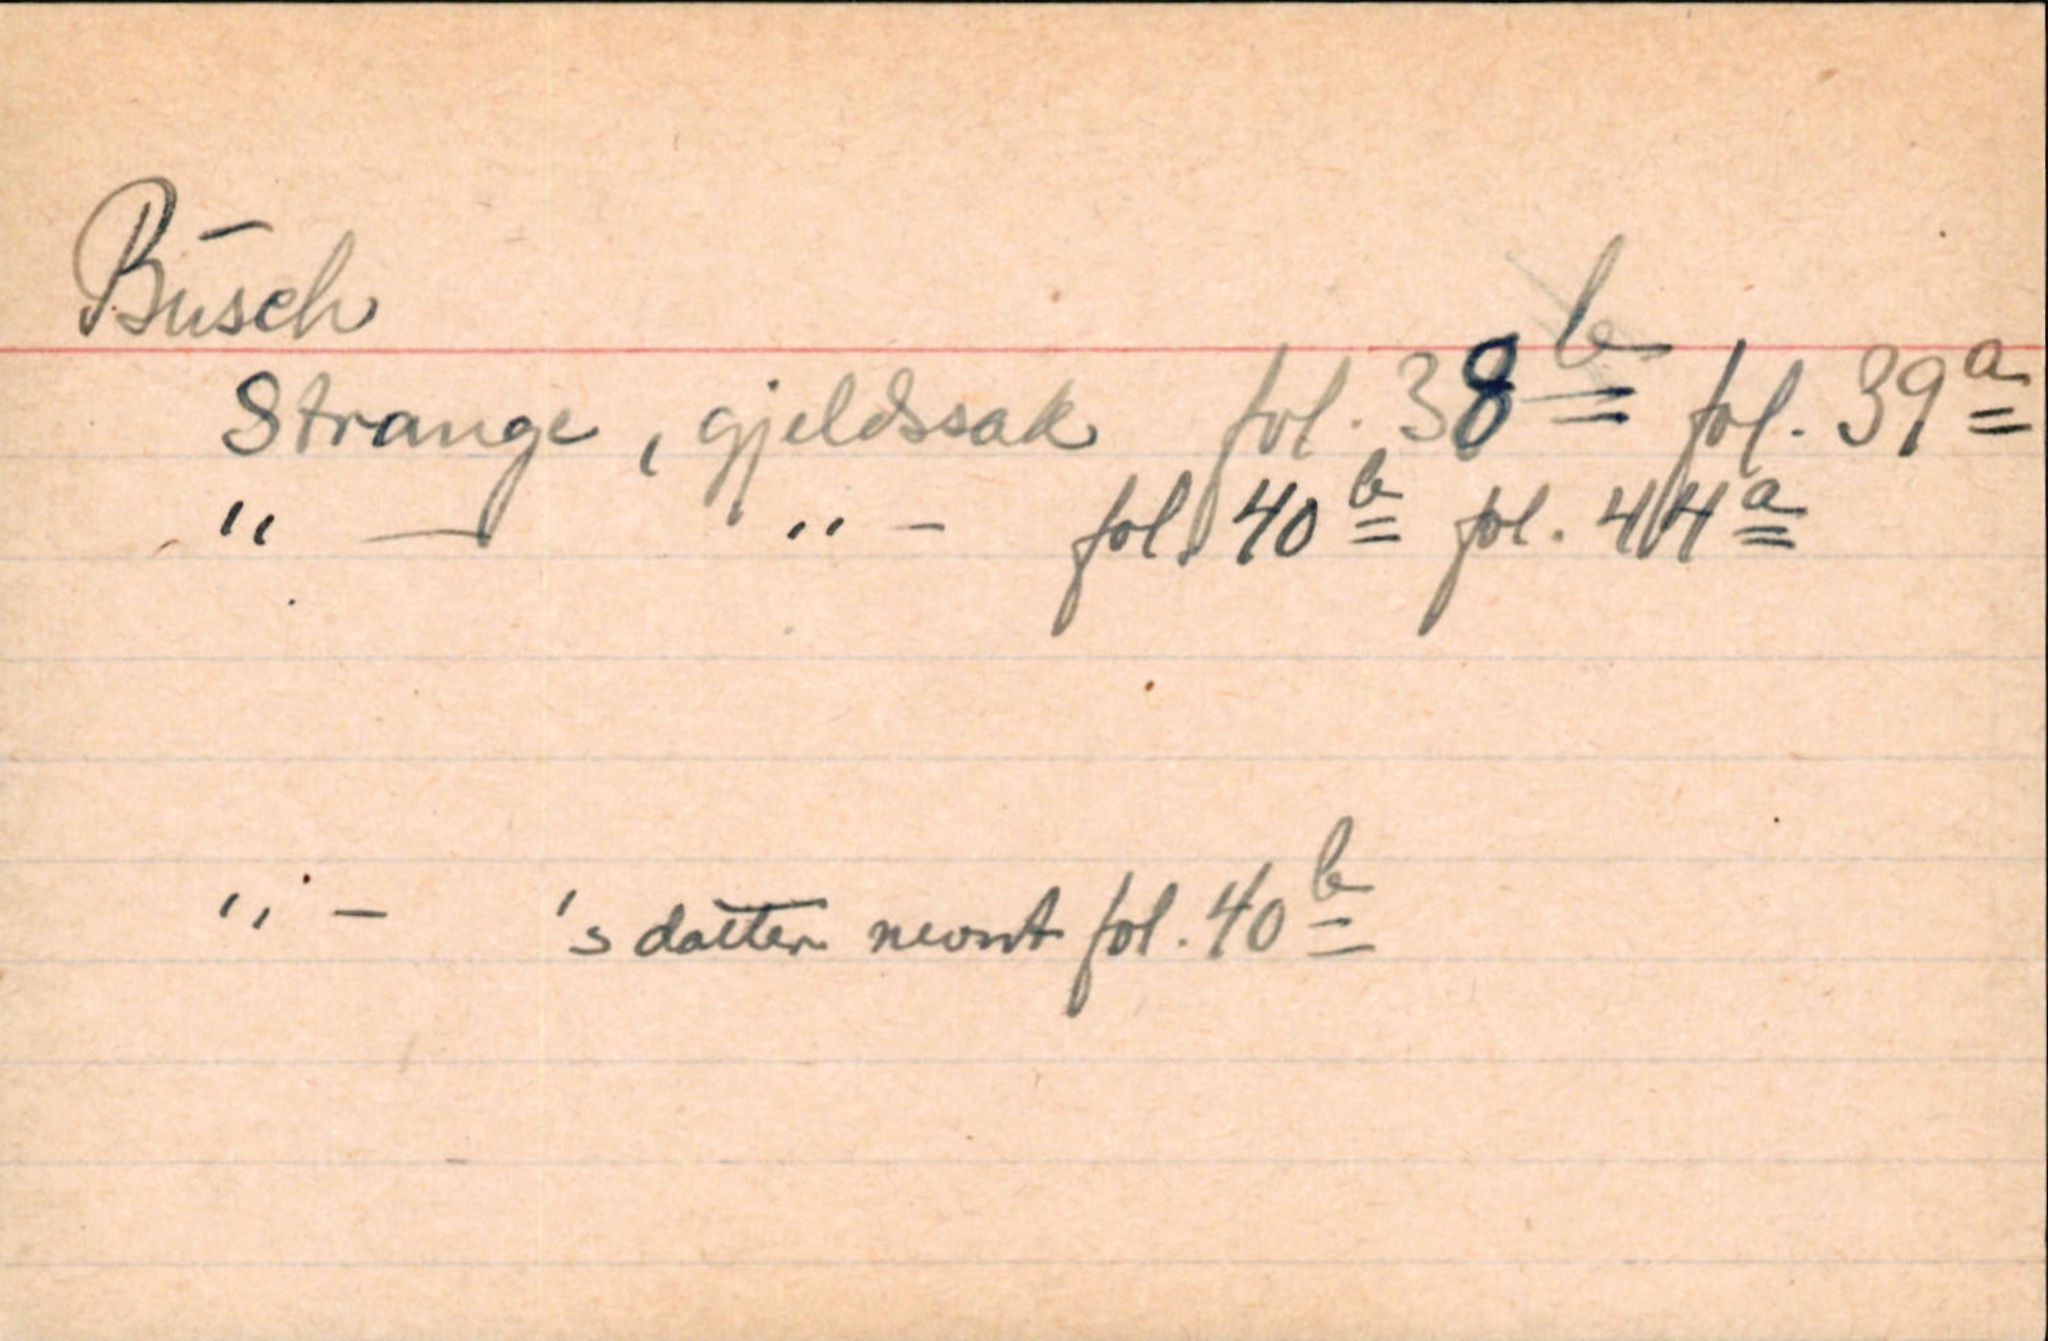 Busch
Strange, gjeldssak fol. 38b fol. 39a
" — " - fol. 40b fol. 44a
" - 's datter nevnt fol. 40b